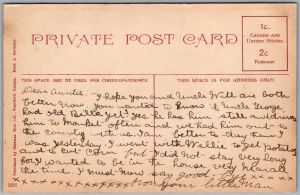 PRIVATE POST CARD
1c.
CANADA AND
UNITED STATES
2c
FOREIGN
THIS SPACE MAY BE USED FOR CORRESPONDENCE.
THIS SPACE IS FOR ADDRESS ONLY.
Dear Auntie. I hope you and Uncle Will are both
better now. You wanted to know if Uncle George
had old Bille yet. Yes he has him still and drives
him to Market often and he had him out to
the country with us. I am better to day than I
was yesterday. I went with Wallie to get potatoes
and I cut Did not stay very long
for I wanted to be in the house very nearly
the time. I must now say good bye
from your little man